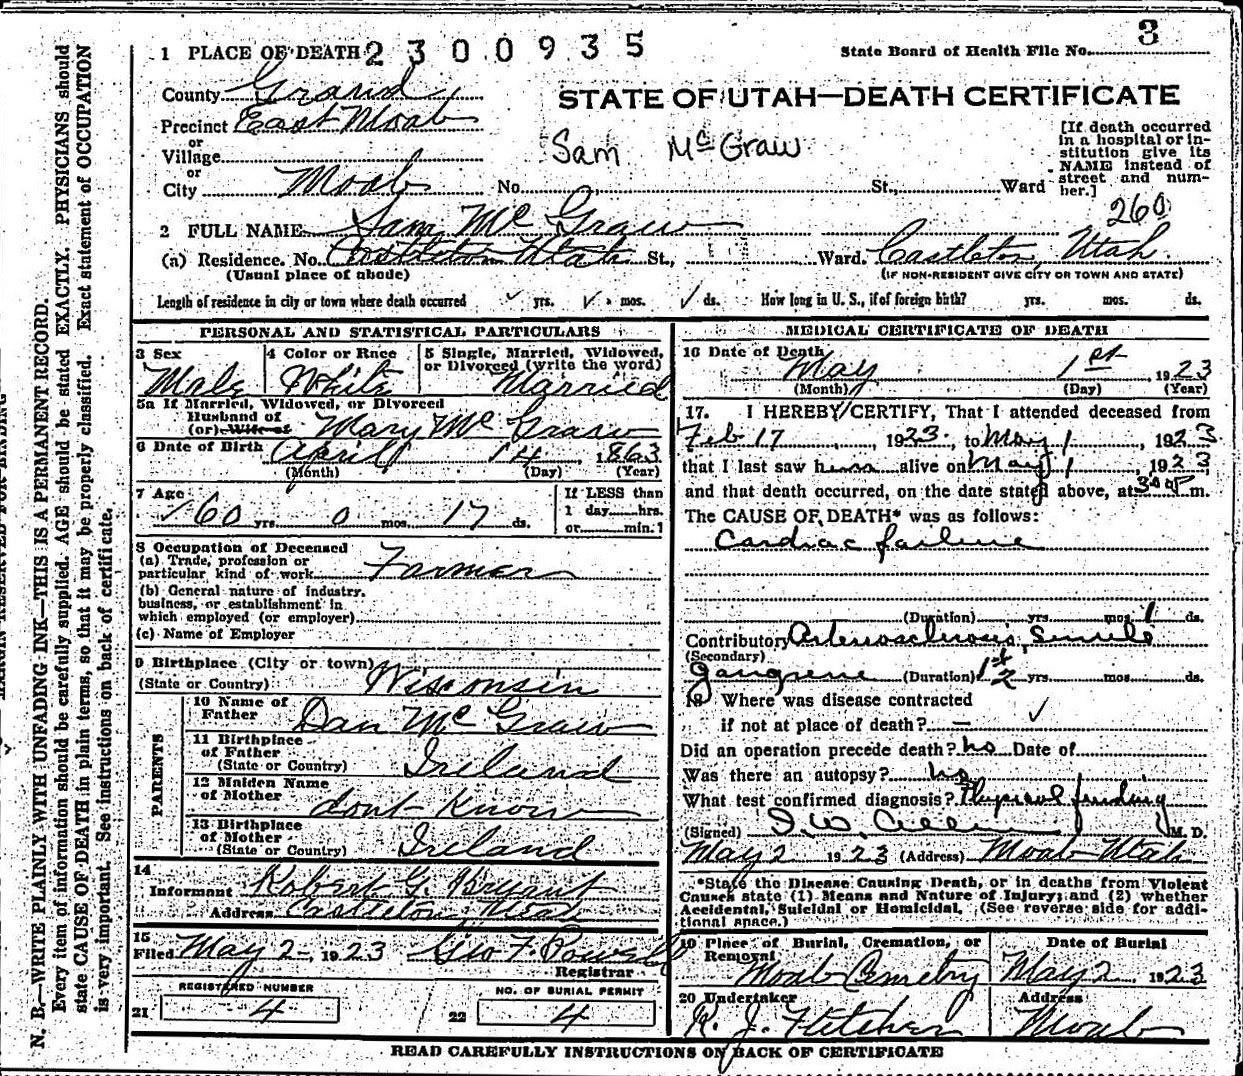 1 PLACE OF DEATH 2300935
State Board of Health File No. 3
County Grand
STATE OF UTAH—DEATH CERTIFICATE
Precinct East Moab
or
Village
or
City Moab No. St., Ward
Sam McGraw
[If death occurred in a hospital or in-
stitution give its
NAME instead of
street and num-
ber.]
260
2 FULL NAME Sam McGraw
(a) Residence. No. Castleton Utah St., Ward. Castleton, Utah.
(Usual place of abode) (IF NON-RESIDENT GIVE CITY OR TOWN AND STATE)
Length of residence in city or town where death occurred yrs. mos. ds. How long in U. S., if of foreign birth? yrs. mos. ds.
PERSONAL AND STATISTICAL PARTICULARS
3 Sex
Male
4 Color or Race
White
5 Single, Married, Widowed,
or Divorced (write the word)
Married
5a If Married, Widowed, or Divorced
Husband of
(or) Wife of Mary McGraw
6 Date of Birth April 14, 1863
(Month) (Day) (Year)
7 Age
60 yrs. 0 mos. 17 ds.
If LESS than
1 day hrs.
or min.?
8 Occupation of Deceased
(a) Trade, profession or
particular kind of work Farmer
(b) General nature of industry,
business, or establishment in
which employed (or employer)
(c) Name of Employer
9 Birthplace (City or town)
(State or Country) Wisconsin
PARENTS
10 Name of
Father Dan McGraw
11 Birthplace
of Father
(State or Country) Ireland
12 Maiden Name
of Mother dont Know
13 Birthplace
of Mother
(State or Country) Ireland
14
Informant Robert G. Bryant
Address Castleton, Utah
15
Filed May 2, 1923 Geo F. Powell
Registrar
REGISTERED NUMBER
21 4
NO. OF BURIAL PERMIT
22 4
MEDICAL CERTIFICATE OF DEATH
16 Date of Death
May 1st 1923
(Month) (Day) (Year)
17. I HEREBY CERTIFY, That I attended deceased from
Feb 17, 1923, to May 1, 1923
that I last saw him alive on May 1, 1923
and that death occurred, on the date stated above, at m.
The CAUSE OF DEATH* was as follows:
Cardiac failure
(Duration) yrs. mos. 1 ds.
Contributory Arteriosclerosis, Senile
(Secondary)
gangrene (Duration) yrs. mos. ds.
18 Where was disease contracted
if not at place of death? —
Did an operation precede death? no Date of
Was there an autopsy? no
What test confirmed diagnosis? Physical finding
(Signed) I. W. Allen M. D.
May 2 1923 (Address) Moab Utah
*State the Disease Causing Death, or in deaths from Violent
Causes state (1) Means and Nature of Injury; and (2) whether
Accidental, Suicidal or Homicidal. (See reverse side for addi-
tional space.)
19 Place of Burial, Cremation, or
Removal
Moab Cemetry
Date of Burial
May 2 1923
20 Undertaker
K. J. Fletcher
Address
Moab
READ CAREFULLY INSTRUCTIONS ON BACK OF CERTIFICATE
N. B.—WRITE PLAINLY WITH UNFADING INK—THIS IS A PERMANENT RECORD.
Every item of information should be carefully supplied. AGE should be stated EXACTLY. PHYSICIANS should
state CAUSE OF DEATH in plain terms, so that it may be properly classified. Exact statement of OCCUPATION
is very important. See instructions on back of certificate.